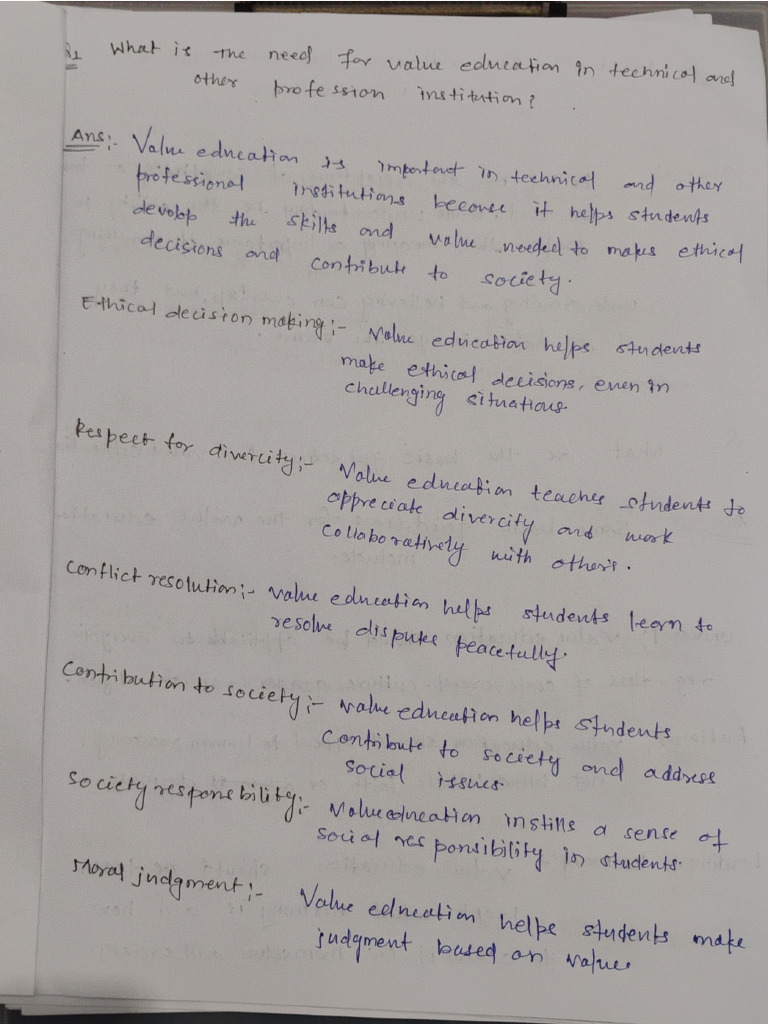 Q1 What is the need for value education in technical and
other profession institution?
Ans:- Value education is important in, technical and other
professional institutions because it helps students
devolop the skills and value needed to makes ethical
decisions and contribute to society.
Ethical decision making:- Value education helps students
make ethical decisions, even in
challenging situations
Respect for divercity:- Value education teaches students to
appreciate divercity and work
collaboratively with other's.
Conflict resolution:- value education helps students learn to
resolve disputes peacefully.
Contribution to society:- value education helps students
contribute to society and address
social issues.
Society responsbility:- Value education instills a sense of
social responsibility in students.
Moral judgment:- Value education helps students make
judgment based on values